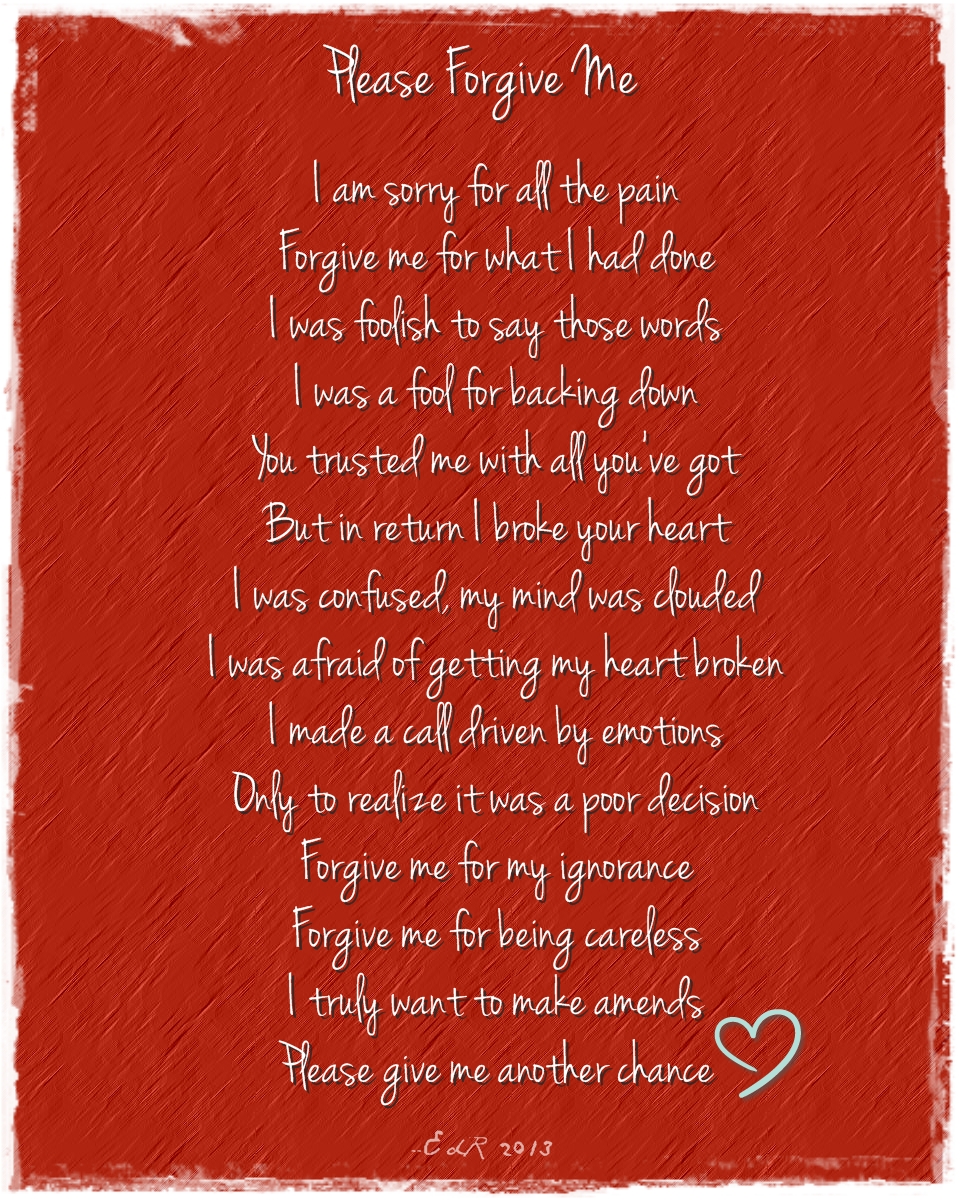 Please Forgive Me
I am sorry for all the pain
Forgive me for what I had done
I was foolish to say those words
I was a fool for backing down
You trusted me with all you've got
But in return I broke your heart
I was confused, my mind was clouded
I was afraid of getting my heart broken
I made a call driven by emotions
Only to realize it was a poor decision
Forgive me for my ignorance
Forgive me for being careless
I truly want to make amends
Please give me another chance
--EdR 2013